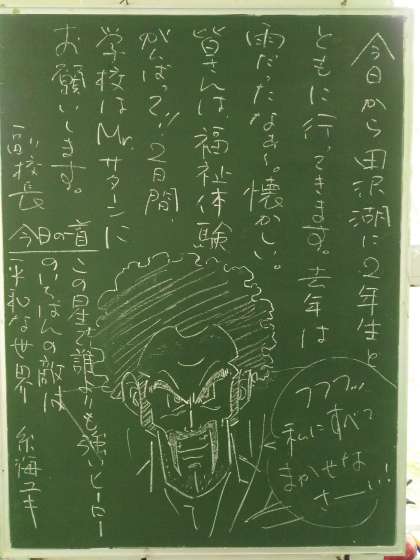 今日から田沢湖に2年生と
ともに行ってきます。去年は
雨だったなぁ〜。懐かしい。
皆さんは、福祉体験
がんばって!!2日間、
学校はMr.サタンに
お願いします。
副校長
今日の一首
この星で誰よりも強いヒーロー
のいちばんの敵は
平和な世界
糸海ユキ
フフフ…
私にすべて
まかせな
さーい!